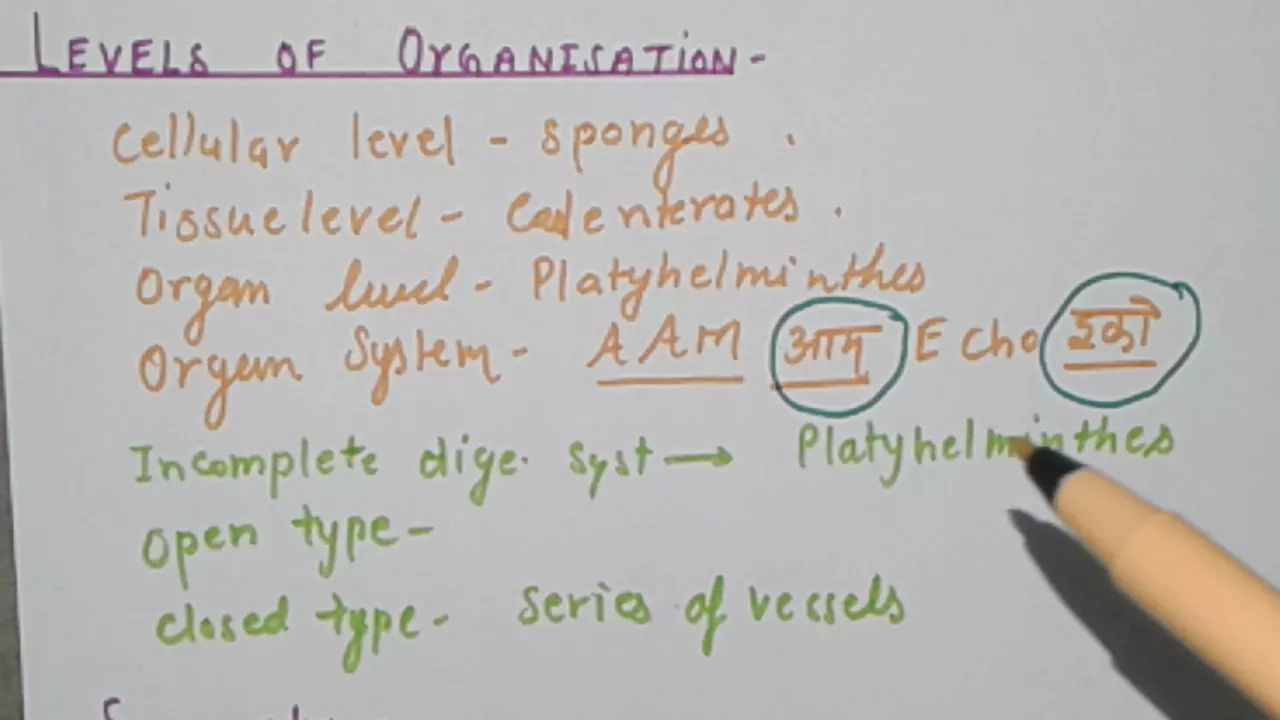 LEVELS OF ORGANISATION -
Cellular level - sponges .
Tissue level - Coelenterates .
Organ level - Platyhelminthes
Organ System - AAM आम Echo इको
Incomplete dige. syst → Platyhelminthes
open type -
closed type - series of vessels